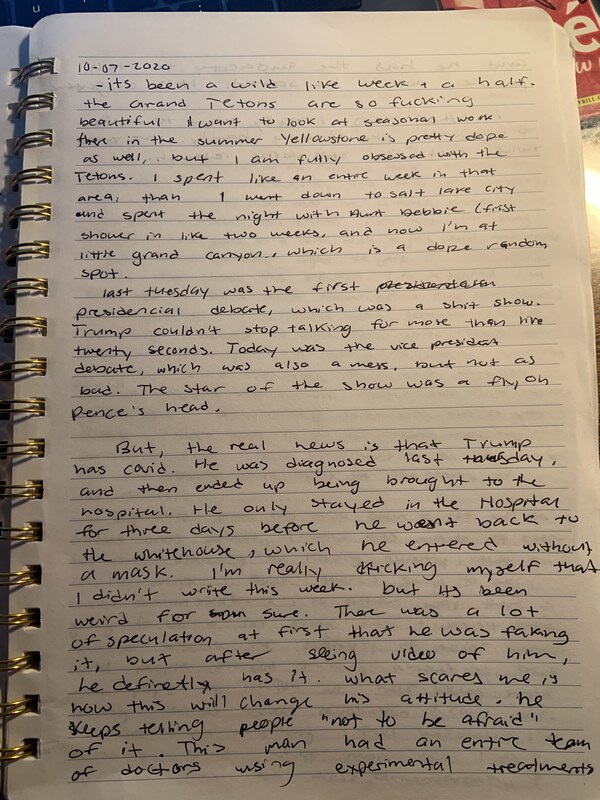 10-07-2020
-its been a wild like week + a half.
the Grand Tetons are so fucking
beautiful I want to look at seasonal work
there in the summer Yellowstone is pretty dope
as well, but I am fully obsessed with the
Tetons. I spent like an entire week in that
area, than I went down to salt lake city
and spent the night with Aunt Debbie (first
shower in like two weeks, and now I'm at
little grand canyon, which is a dope random
spot.
last tuesday was the first
presidencial debate, which was a shit show.
Trump couldn't stop talking for more than like
twenty seconds. Today was the vice president
debate, which was also a mess, but not as
bad. The star of the show was a fly, on
Pence's head.
But, the real news is that Trump
has covid. He was diagnosed last day,
and then ended up being brought to the
hospital. He only stayed in the Hospital
for three days before he went back to
the whitehouse, which he entered without
a mask. I'm really kicking myself that
I didn't write this week. but its been
weird for sure. Ther was a lot
of speculation at first that he was faking
it, but after seeing video of him,
he definetly has it. what scares me is
how this will change his attitude. he
keeps telling people "not to be afraid"
of it. This man had an entire team
of doctors using experimental treatments